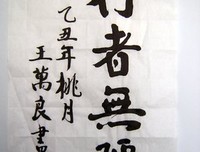 行者無疆
乙丑年桃月
王萬良書